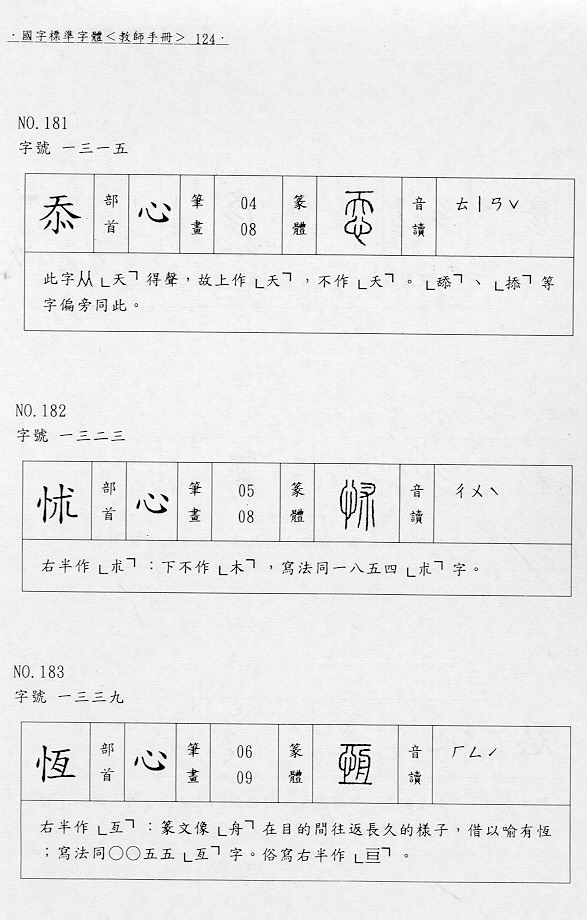 ·國字標準字體<教師手冊> 124·
NO.181
字號 一三一五
忝 部首 心 筆畫 04 08 篆體 音讀 ㄊㄧㄢˇ
此字从「天」得聲,故上作「天」,不作「夭」。「舔」、「掭」等
字偏旁同此。
NO.182
字號 一三二三
怵 部首 心 筆畫 05 08 篆體 音讀 ㄔㄨˋ
右半作「朮」:下不作「木」,寫法同一八五四「朮」字。
NO.183
字號 一三三九
恆 部首 心 筆畫 06 09 篆體 音讀 ㄏㄥˊ
右半作「亙」:篆文像「舟」在目的間往返長久的樣子,借以喻有恆
;寫法同○○五五「亙」字。俗寫右半作「亘」。